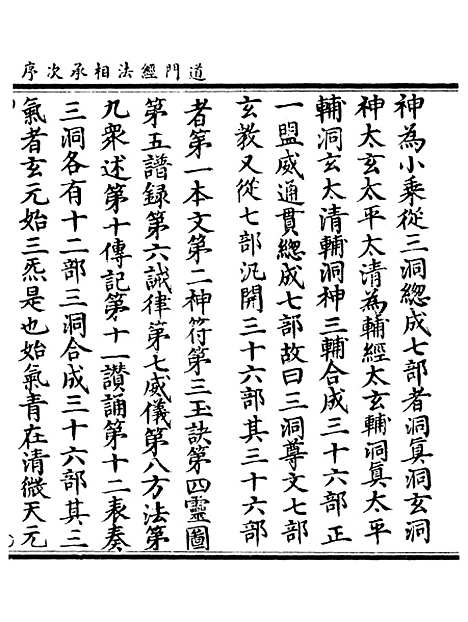 道門經法相承次序
神為小乘從三洞總成七部者洞真洞玄洞
神太玄太平太清為輔經太玄輔洞真太平
輔洞玄太清輔洞神三輔合成三十六部正
一盟威通貫總成七部故曰三洞尊文七部
玄教又從七部汎開三十六部其三十六部
者第一本文第二神符第三玉訣第四靈圖
第五譜録第六誡律第七威儀第八方法第
九衆述第十傳記第十一讚誦第十二表奏
三洞各有十二部三洞合成三十六部其三
氣者玄元始三炁是也始氣青在清微天元